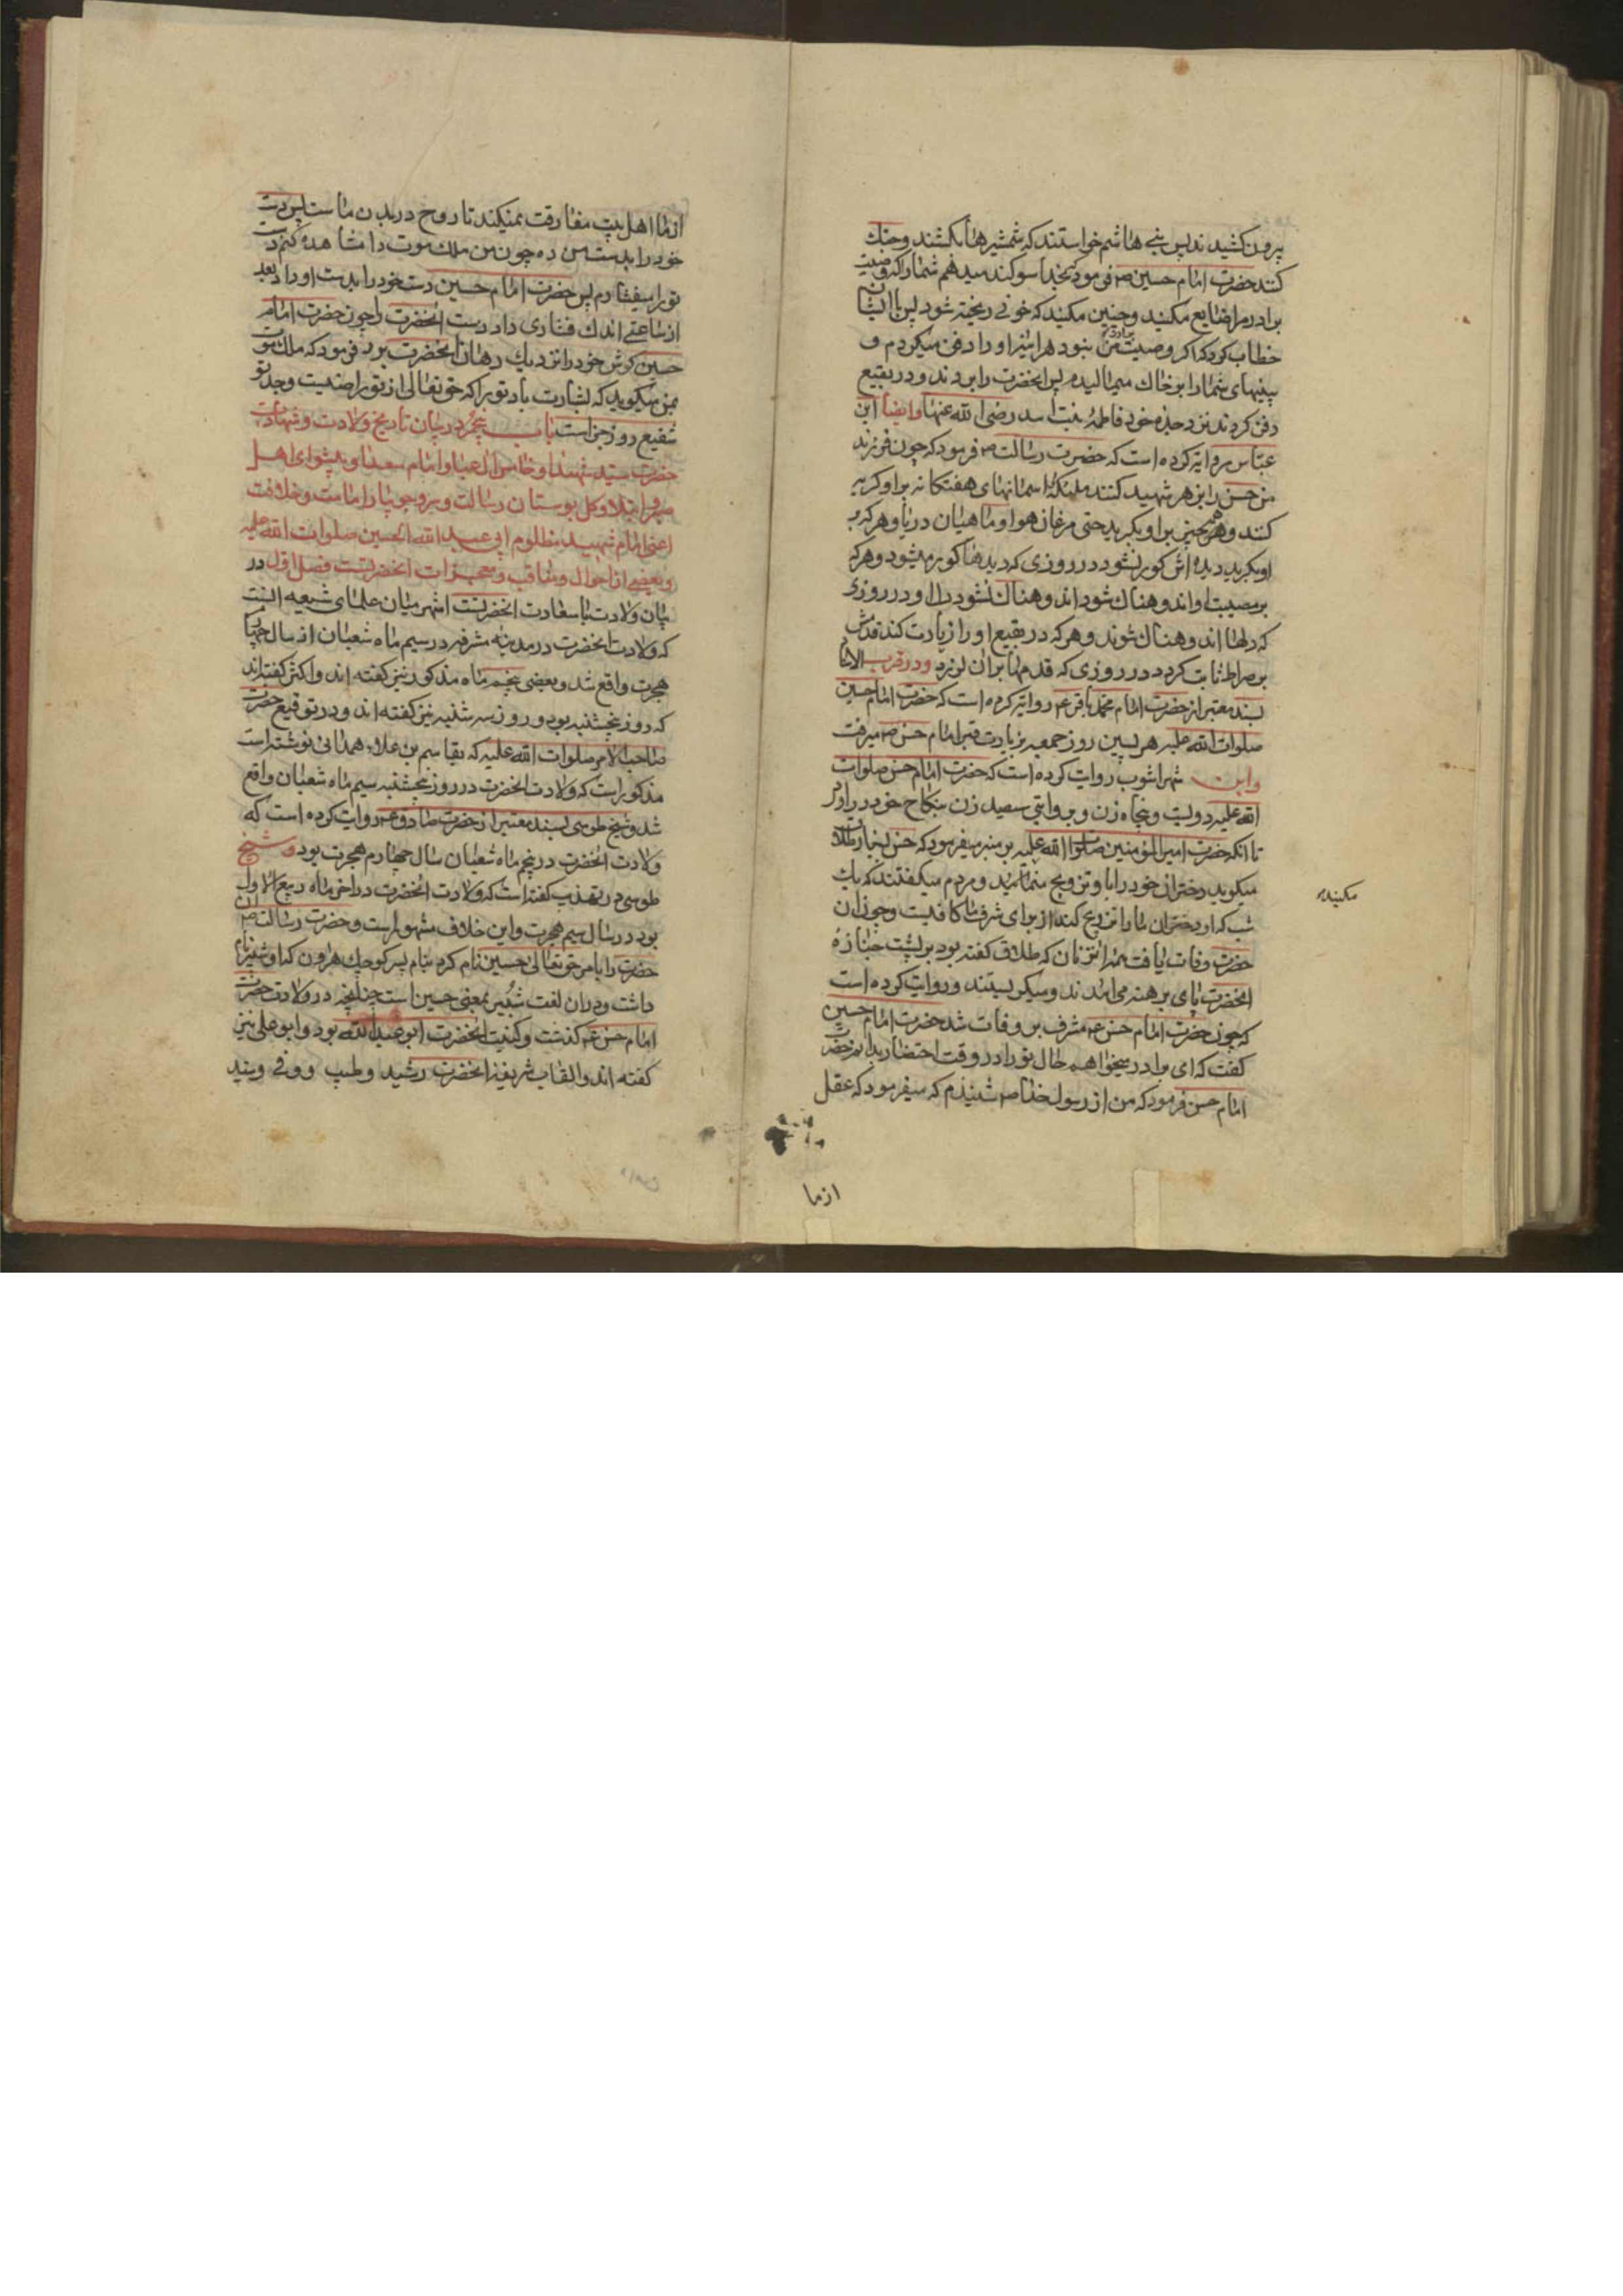 بیرون کشیدند پس بنی هاشم خواستند که شمشیرها بکشند و جنک
کنند حضرت امام حسین ص فرمود بخدا سوکند میدهم شما را که وصیت
برادر مرا ضایع مکنید و چنین مکنید که خونی ریخته شود پس با ایشان
خطاب کرد که اکر وصیت برادر من نبود هر اینه او را دفن میکردم و
بینیهای شما را بر خاک میمالیدم پس انحضرت را بردند و در بقیع
دفن کردند نزد جده خود فاطمه بنت اسد رضی الله عنها و ایضا ابن
عباس روایة کرده است که حضرت رسالت ص فرمود که چون فرزند
من حسن را بزهر شهید کنند ملئکه اسمانهای هفتکانه بر او کریه
کنند و همه چیز بر او بکرید حتی مرغان هوا و ماهیان دریا و هر که بر
او بکرید دیده اش کور نشود در روزی که دیدها کور میشود و هر که
بر مصیبت او اندوهناک شود اندوهناک نشود دل او در روزی
که دلها اندوهناک شوند و هر که در بقیع او را زیارت کند قدمش
بر صراط ثابت کردد در روزی که قدمها بران لرزد و در قرب الاسنا
بسند معتبر از حضرت امام محمد باقر ع روایة کرده است که حضرت امام حسین
صلوات الله علیه هر پسین روز جمعه بزیارت قبر امام حسن ص میرفت
و ابن شهراشوب روایت کرده است که حضرت امام حسن صلوات
الله علیه دویست و پنجاه زن و بروایتی سیصد زن بنکاح خود در اورد
تا انکه حضرت امیر المؤمنین صلوا الله علیه بر منبر میفرمود که حسن بسیار طلاق
میکوید دختران خود را با و تزویج منمائید و مردم میکفتند که یک
شب که او دختران ما را تزویج کند از برای شرف ما کافیست و چون ان
حضرت وفات یافت همه ان زنان که طلاق کفته بود بر پشت جنازه
انحضرت پای برهنه می امدند و میکریستند و روایت کرده است
که چون حضرت امام حسن ع مشرف بر وفات شد حضرت امام حسین
کفت که ای برادر میخواهم حال تو را در وقت احتضار بدانم حضرت
امام حسن فرمود که من از رسولخدا ص شنیدم که میفرمود که عقل
میکنید
از ما
از ما اهل بیت مفارقت نمیکند تا روح در بدن ما ست پس دست
خود را بدست من ده چون من ملک موت را مشاهده کنم دست
تو را میفشارم پس حضرت امام حسین دست خود را بدست او داد بعد
از ساعتی اندک فشاری داد دست انحضرت را چون حضرت امام
حسین کوش خود را نزدیک دهان انحضرت برد فرمود که ملک موت
بمن میکوید که بشارت باد تو را که حق تعالی از تو راضیست و جد تو
شفیع روز جزاست باب پنجم در بیان تاریخ ولادت و شهادت
حضرت سید شهدا و خامس ال عبا و امام سعدا و پیشوای اهل
صبر و ابتلا و کل بوستان رسالت و سرو جویبار امامت و خلافت
اعنی امام شهید مظلوم ابی عبد الله الحسین صلوات الله علیه
و بعضی از احوال و مناقب و معجزات انحضرتست فصل اول در
بیان ولادت با سعادت انحضرتست اشهر میان علمای شیعه انست
که ولادت انحضرت در مدینه مشرفه در سیم ماه شعبان از سال چهارم
هجرت واقع شد و بعضی پنجم ماه مذکور نیز کفته اند و اکثر کفته اند
که روز پنجشنبه بود و روز سه شنبه نیز کفته اند و در توقیع حضرت
صاحب الامر صلوات الله علیه که بقاسم بن علاء همدانی نوشته است
مذکور است که ولادت انحضرت در روز پنجشنبه سیم ماه شعبان واقع
شد و شیخ طوسی بسند معتبر از حضرت صادق ع روایت کرده است که
ولادت انحضرت در پنجم ماه شعبان سال چهارم هجرت بود و شیخ
طوسی در تهذیب کفته است که ولادت انحضرت در اخر ماه ربیع الاول
بود در سال سیم هجرت و این خلاف مشهور است و حضرت رسالت ص ان
حضرت را بامر حق تعالی حسین نام کرد بنام پسر کوچک هرون که او شبیر نام
داشت و در ان لغت شبیر بمعنی حسین است چنانچه در ولادت حضرت
امام حسن ع کذشت و کنیت انحضرت ابو عبد الله بود و ابو علی نیز
کفته اند و القاب شریفه انحضرت رشید و طیب و وفی و سید